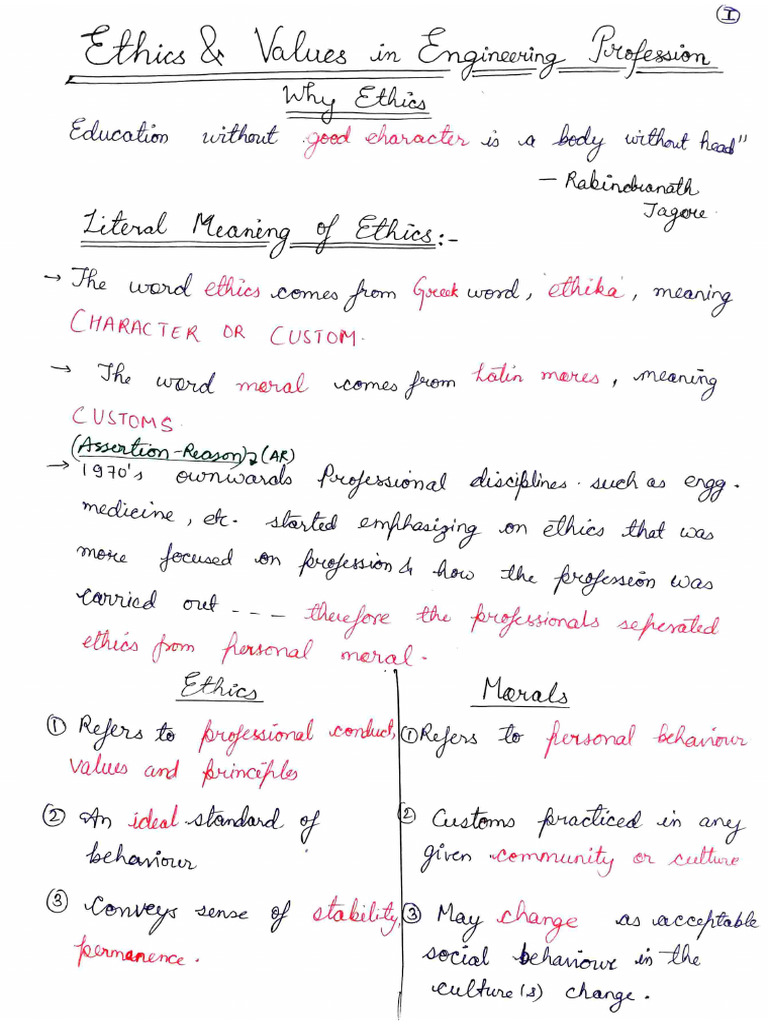 (I)
Ethics & Values in Engineering Profession
Why Ethics
Education without good character is a body without head"
— Rabindranath
Tagore.
Literal Meaning of Ethics:-
→ The word ethics comes from Greek word, 'ethika', meaning
CHARACTER OR CUSTOM.
→ The word moral comes from Latin mores, meaning
CUSTOMS.
(Assertion-Reason) (AR)
→ 1970's ownwards Professional disciplines such as engg.
medicine, etc. started emphasizing on ethics that was
more focused on profession & how the profession was
carried out ---- therefore the professionals seperated
ethics from personal moral.
Ethics
① Refers to professional conduct,
values and principles
② An ideal standard of
behaviour
③ Conveys sense of stability,
permanence.
Morals
① Refers to personal behaviour
② Customs practiced in any
given community or culture
③ May change as acceptable
social behaviour in the
culture(s) change.